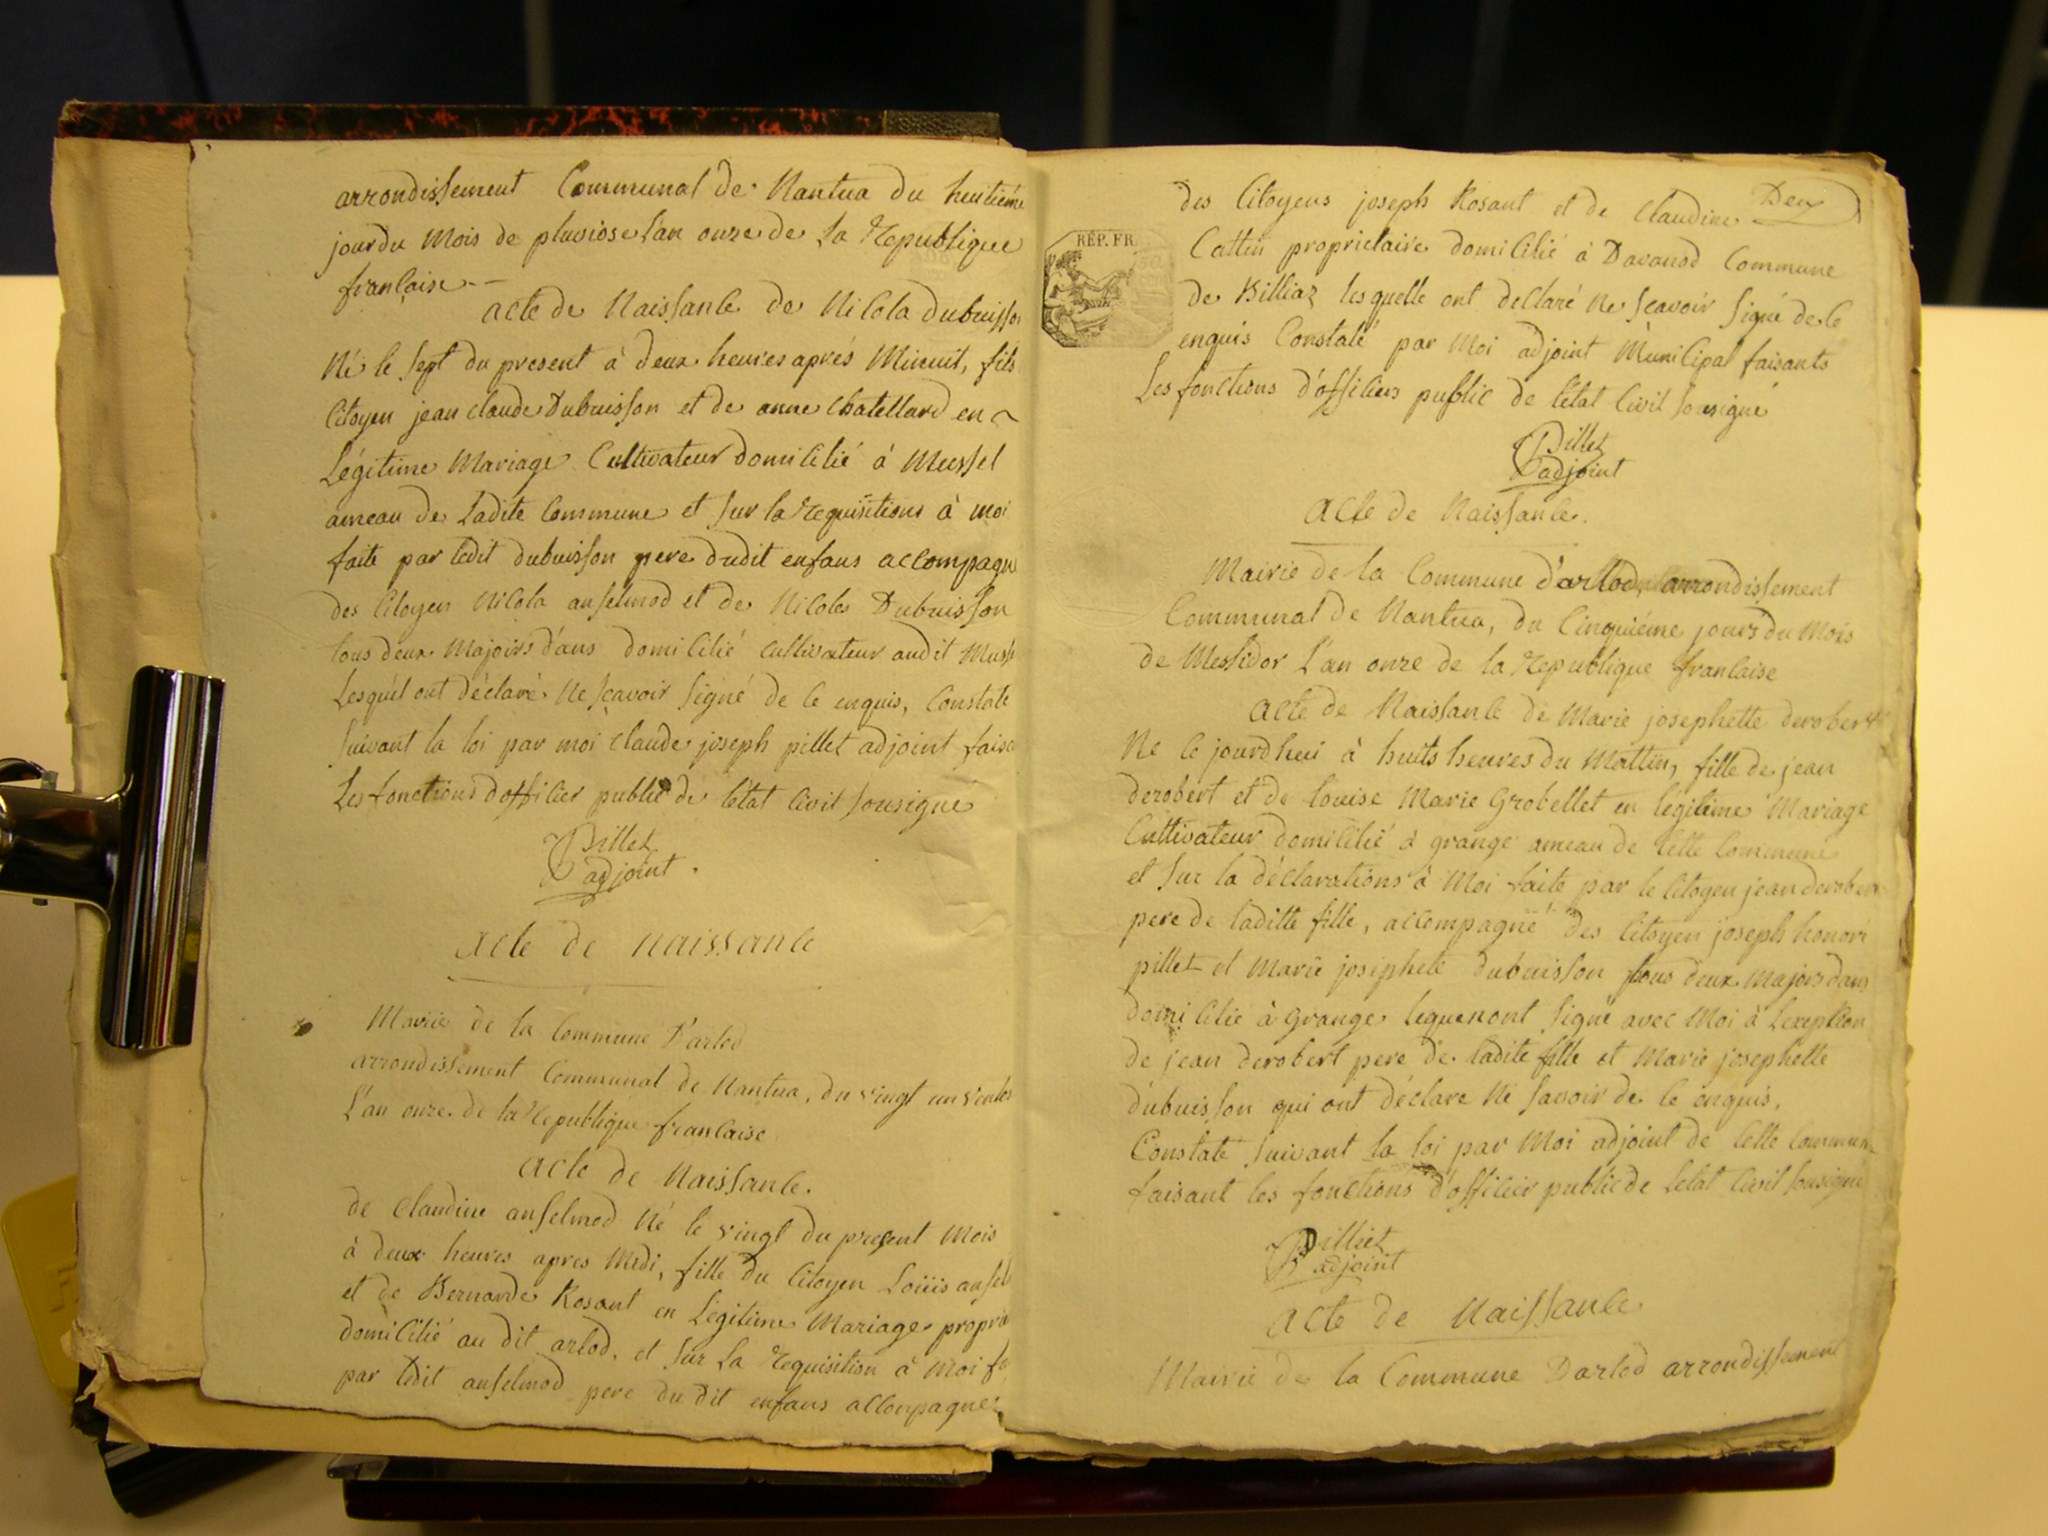 arrondissement Communal de Nantua du huitième
jour du Mois de pluviose l'an onze de la Republique
française --
acte de Naissance de Nicola dubuisson
Né le sept du present à deux heures après Minuit, fils
Citoyen jean claude Dubuisson et de anne chatellard en
Légitime Mariage Cultivateur domicilié à Mussel
ameau de Ladite Commune et sur la requisitions à moi
faite par ledit dubuisson pere dudit enfans accompagn
des Citoyen Nicola anselmod et de Nicolas Dubuisson
tous deux Majoirs d'ans domicilié cultivateur audit Muss
Lesquel ont déclaré Ne sçavoir Signé de ce enquis, Constate
suivant la loi par moi Claude joseph pillet adjoint fais
Les fonctions d'officier public de l'état Civil sousigné
Pillet
adjoint.
acte de naissance
Mairie de la Commune D'arlod
arrondissement Communal de Nantua, du vingt un ventos
L'an onze de la Republique francaise
acte de Naissance.
de Claudine anselmod Né le vingt du present Mois
à deux heures apres Midi, fille du Citoyen Loüis ansel
et de Bernarde Rosant en Légitime Mariage propri
domicilié au dit arlod. et sur La requisition à Moi f
par ledit anselmod pere du dit enfans accompagné
Deux
des Citoyens joseph Rosant et de Claudine
Cattin proprietaire domicilié à Davanod Commune
de Billiaz lesquelle ont declaré Ne scavoir signé de ce
enquis Constaté par Moi adjoint Municipal faisants
Les fonctions d'officiers public de l'état Civil sousigné
RÉP. FR.
Pillet
adjoint
acte de Naissance.
Mairie de la Commune d'arlod arrondissement
Communal de Nantua, du Cinquiéme jours du Mois
de Messidor L'an onze de la Republique francaise
acte de Naissance de Marie josephette derobert
Ne le jourdhui à huits heures du Mattin, fille de jean
derobert et de louise Marie Grobellet en légitime Mariage
Cultivateur domicilié à grange ameau de Cette Commune
et sur la déclarations à Moi faite par le Citoyen jean derobert
pere de laditte fille, accompagné des Citoyen joseph honoré
pillet et Marie josephete dubuisson tous deux majoirs dans
domicilie à Grange lequenont signé avec Moi à Lexeption
de jean derobert pere de ladite fille et Marie josephette
dubuisson qui ont déclare Ne savoir de ce enquis.
Constate suivant la loi par Moi adjoint de Cette Commun
faisant les fonctions d'officier public de l'etat Civil sousigné
Pilliet
adjoint
acte de Naissance
Mairie de la Commune Darlod arrondissement